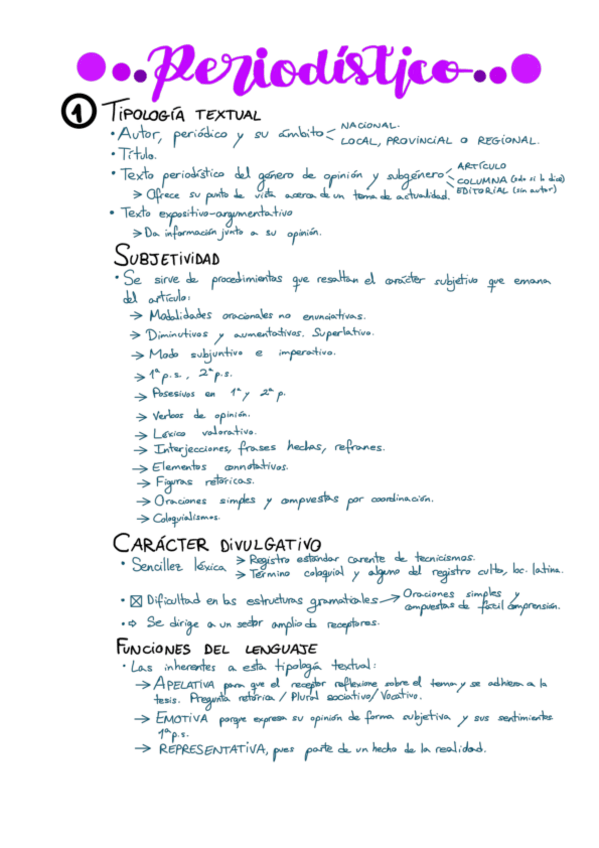 Periodístico
1 TIPOLOGÍA TEXTUAL
• Autor, periódico y su ámbito < NACIONAL.
LOCAL, PROVINCIAL o REGIONAL.
• Título.
• Texto periodístico del género de opinión y subgénero < ARTÍCULO
COLUMNA (sólo si lo dice)
EDITORIAL (sin autor)
→ Ofrece su punto de vista acerca de un tema de actualidad.
• Texto expositivo-argumentativo
→ Da información junto a su opinión.
SUBJETIVIDAD
• Se sirve de procedimientos que resaltan el carácter subjetivo que emana
del artículo:
→ Modalidades oracionales no enunciativas.
→ Diminutivos y aumentativos. Superlativo.
→ Modo subjuntivo e imperativo.
→ 1ª p.s., 2ª p.s.
→ Posesivos en 1ª y 2ª p.
→ Verbos de opinión.
→ Léxico valorativo.
→ Interjecciones, frases hechas, refranes.
→ Elementos connotativos.
→ Figuras retóricas.
→ Oraciones simples y compuestas por coordinación.
→ Coloquialismos.
CARÁCTER DIVULGATIVO
• Sencillez léxica → Registro estándar carente de tecnicismos.
→ Término coloquial y alguno del registro culto, loc. latina.
• ☒ Dificultad en las estructuras gramaticales → Oraciones simples y
compuestas de fácil comprensión.
• ⇨ Se dirige a un sector amplio de receptores.
FUNCIONES DEL LENGUAJE
• Las inherentes a esta tipología textual:
→ APELATIVA para que el receptor reflexione sobre el tema y se adhiera a la
tesis. Pregunta retórica / Plural sociativo / Vocativo.
→ EMOTIVA porque expresa su opinión de forma subjetiva y sus sentimientos
1ª p.s.
→ REPRESENTATIVA, pues parte de un hecho de la realidad.